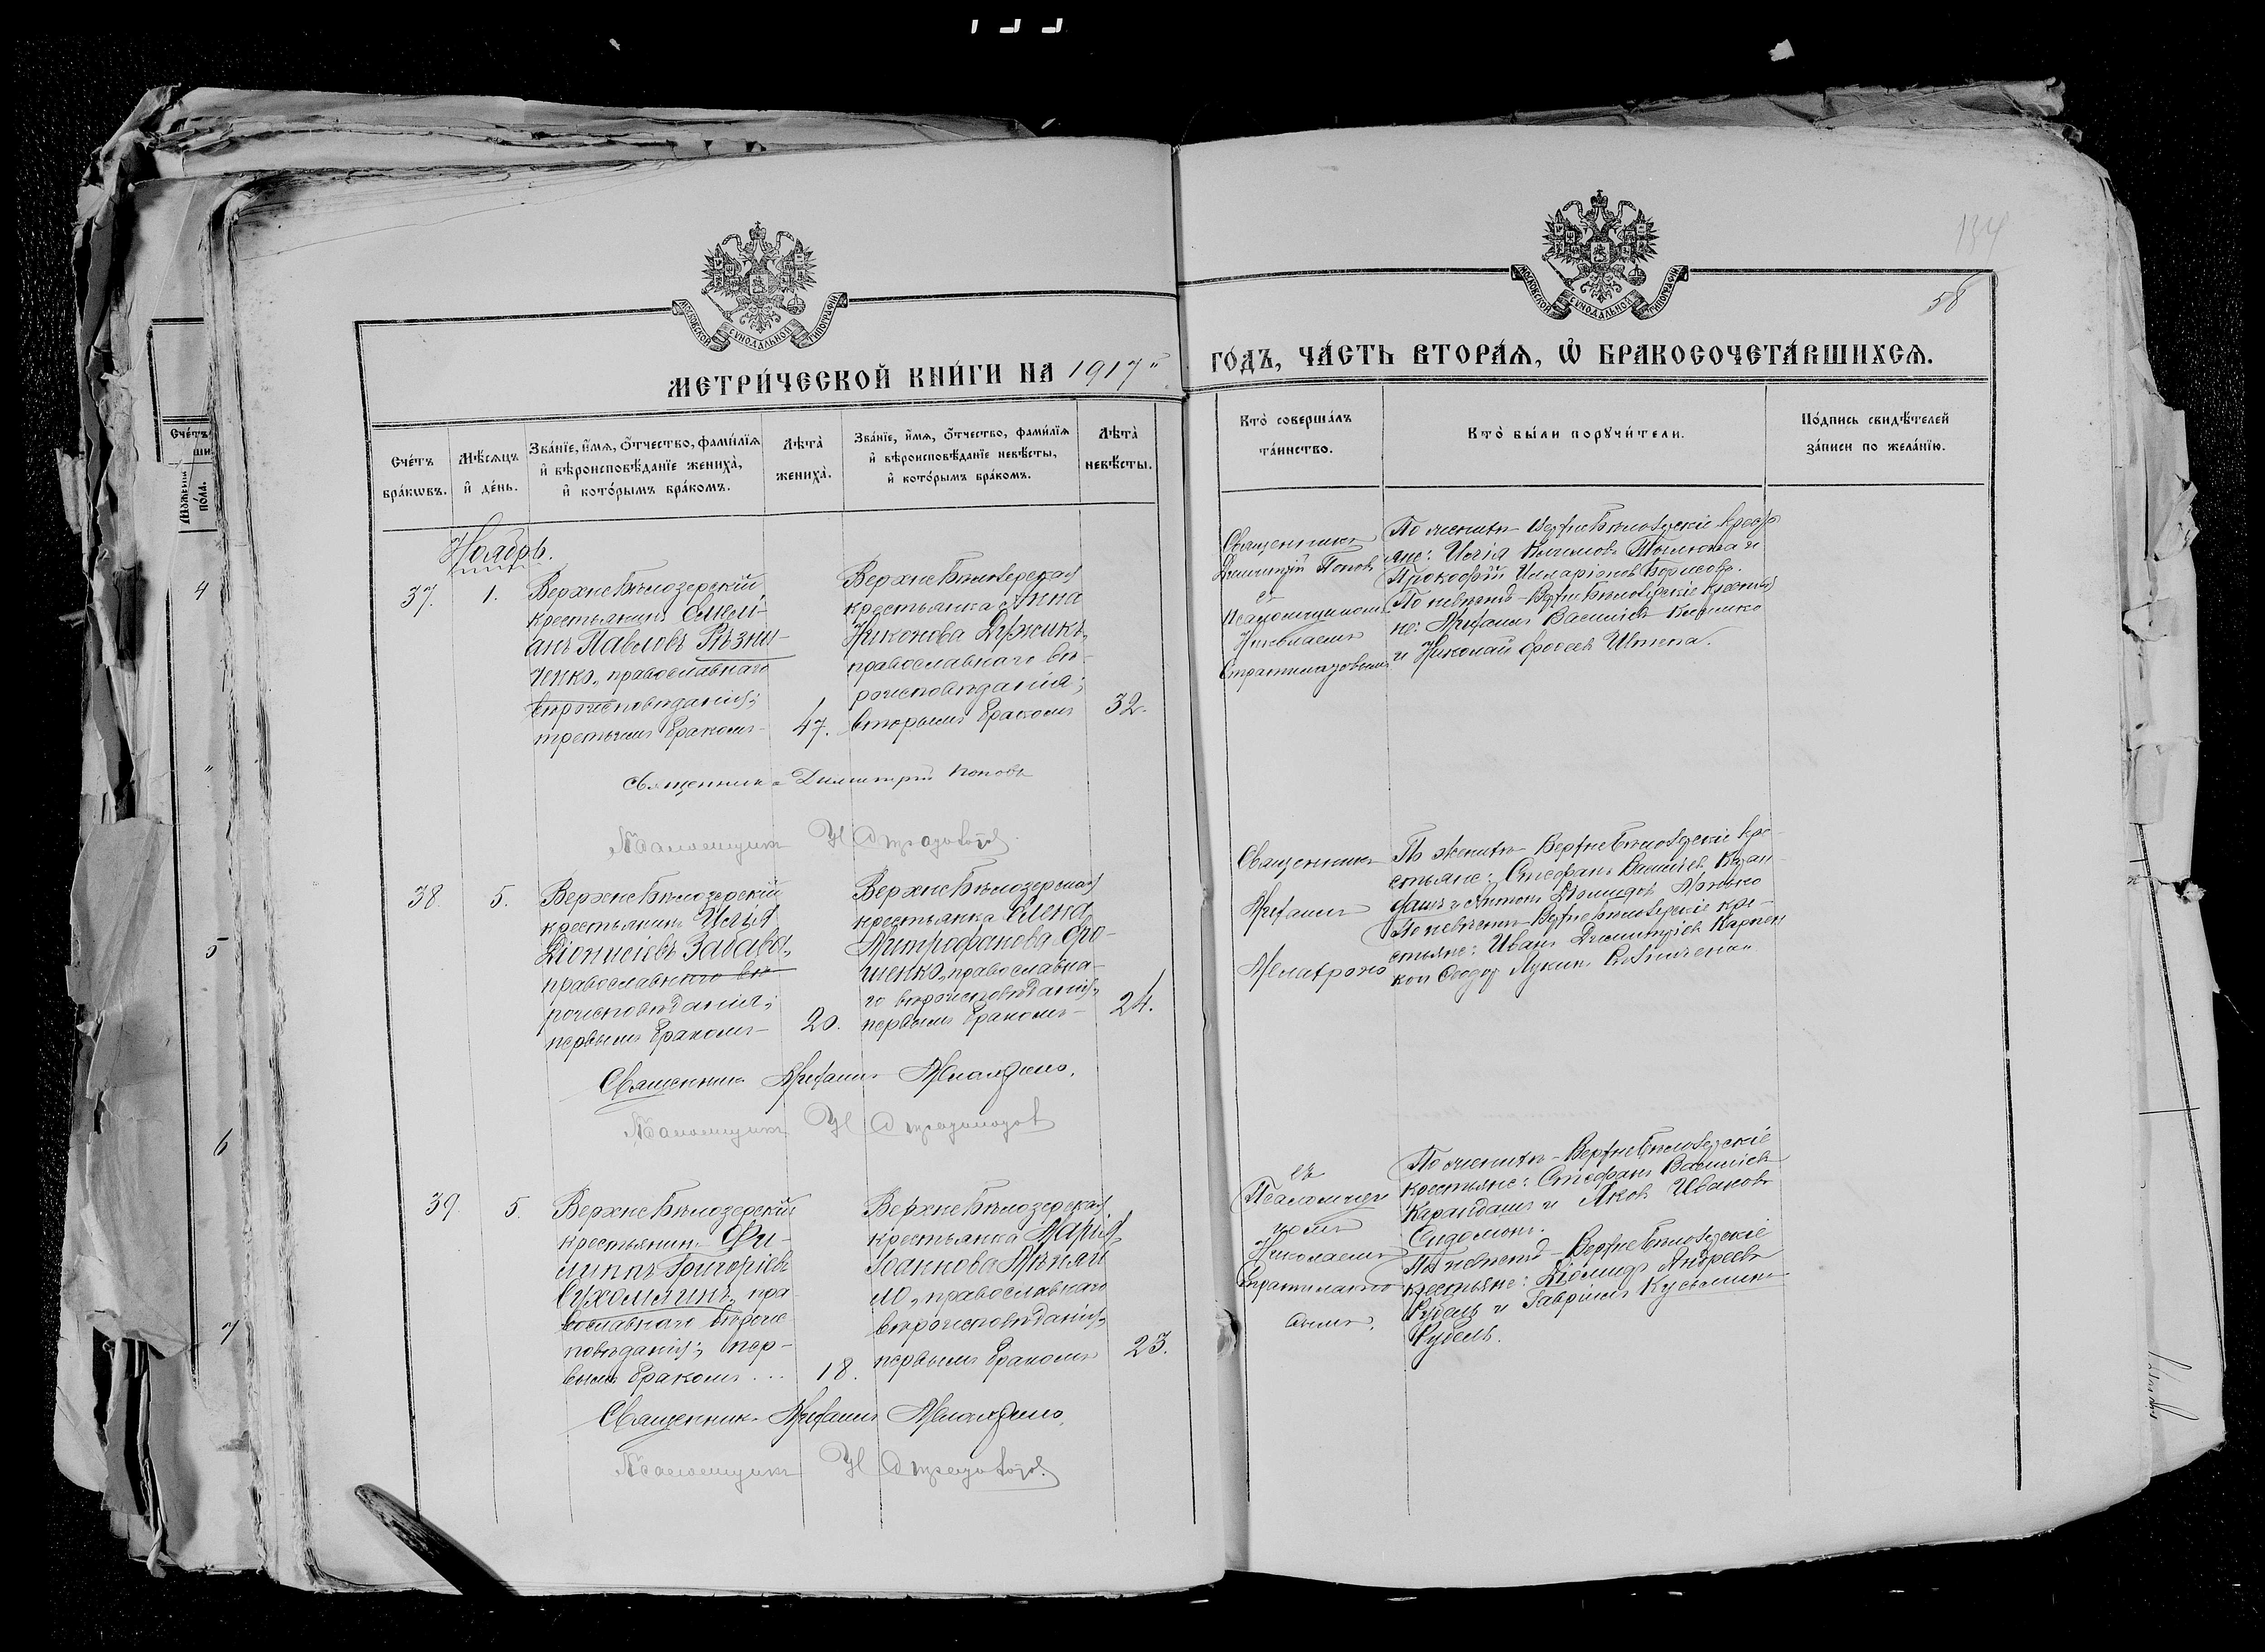 134
58
МОСКОВСКОЙ СѴНОДАЛЬНОЙ ТИПОГРАФІИ
МОСКОВСКОЙ СѴНОДАЛЬНОЙ ТИПОГРАФІИ
МЕТРИ́ЧЕСКОЙ КНИ́ГИ НА 1917й
ГО́ДЪ, ЧА́СТЬ ВТОРА́Ѧ, Ѡ҆ БРАКОСОЧЕТА́ВШИХСѦ.
Сче́тъ
бра́кѡвъ.
Мѣ́сѧцъ
и҆ де́нь.
Зва́нїе, и҆́мѧ, о҆́тчество, фами́лїѧ
и҆ вѣроисповѣ́данїе жениха̀,
и҆ кото́рымъ бра́комъ.
Лѣта̀
жениха̀.
Зва́нїе, и҆́мѧ, о҆́тчество, фами́лїѧ
и҆ вѣроисповѣ́данїе невѣ́сты,
и҆ кото́рымъ бра́комъ.
Лѣта̀
невѣ́сты.
Кто̀ соверша́лъ
та́инство.
Кто̀ бы́ли порꙋчи́тели.
По́дпись свидѣ́телей
за́писи по жела́нїю.
Ноябрь.
37.
1.
ВерхнеБѣлозерскій
крестьянинъ Емелі-
анъ Павловъ Рѣзни-
ченко, православнаго
вѣроисповѣданія;
третьимъ бракомъ-
47.
ВерхнеБѣлозерская
крестьянка Анна
Никонова Держикъ,
православнаго вѣ-
роисповѣданія;
вторымъ бракомъ
32.
Священникъ
Димитрій Поповъ
съ
Псаломщикомъ
Николаемъ
По женихѣ-ВерхнеБѣлозерскіе крестья
яне: Илія
Прокофій Иларіоновъ Борисовъ.
По невѣстѣ-ВерхнеБѣлозерскіе крестья
не: Михаилъ Василіевъ
и Николай
священникъ Димитрій Поповъ
Псаломщикъ Н
38.
5.
ВерхнеБѣлозерскій
крестьянинъ Илія
Діонисіевъ Забава,
православнаго вѣ-
роисповѣданія;
первымъ бракомъ-
20.
ВерхнеБѣлозерская
крестьянка Елена
Митрофанова Ѳро-
ченко, православна-
го вѣроисповѣданія,
первымъ бракомъ-
24.
Священникъ
Михаилъ
По женихѣ-ВерхнеБѣлозерскіе кре-
стьяне: Стефанъ Василіевъ Каран-
дашъ и Антонъ Діомидовъ
По невѣстѣ-ВерхнеБѣлозерскіе кре-
стьяне: Иванъ Димитріевъ Карпен
ко и Ѳеодоръ Лукинъ
Священникъ Михаилъ
Псаломщикъ Н
39.
5.
ВерхнеБѣлозерскій
крестьянинъ Фи-
липпъ Григоріевъ
Сухомлинъ, пра-
вославнаго вѣроис
повѣданія; пер-
вымъ бракомъ...
18.
ВерхнеБѣлозерская
крестьянка Марія
Іоаннова Мѣняй
ло, православнаго
вѣроисповѣданія,
первымъ бракомъ
23.
съ
Псаломщи
комъ
Николаемъ
По женихѣ-ВерхнеБѣлозерскіе
крестьяне: Стефанъ Василіевъ
Карандашъ и Яковъ Ивановъ
По невѣстѣ-ВерхнеБѣлозерскіе
крестьяне: Діомидъ Андреевъ
Рубель и Гавріилъ Кузьминъ
Рубель.
Священникъ Михаилъ
Псаломщикъ Н
Сче́тъ
4
5
6
7